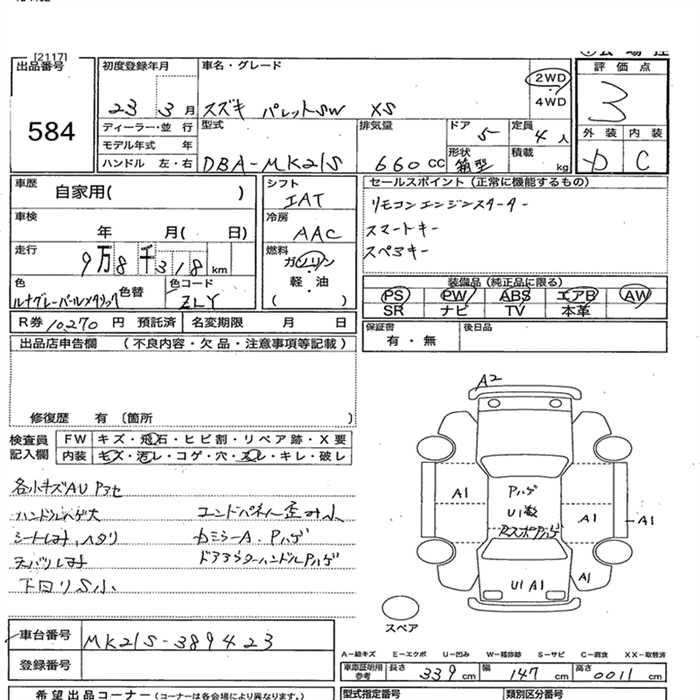 [2117]
出品番号
584
初度登録年月
23 3月
車名・グレード
スズキ パレットSW XS
2WD
・
4WD
評価点
3
外装 内装
C
ディーラー・並行
モデル年式 年
ハンドル 左・右
型式
DBA-MK21S
排気量
660cc
ドア 5
形状 箱型
定員 4人
積載 kg
車歴
自家用( )
車検
年 月( 日)
走行
9万8千318km
色
ルナグレーパールメタリック
色替
色コード
ZLY
シフト
IAT
冷房
AAC
燃料
ガソリン
軽・油
( )
セールスポイント(正常に機能するもの)
リモコンエンジンスターター
スマートキー
スペアキー
装備品(純正品に限る)
PS PW ABS エアB AW
SR ナビ TV 本革
R券 10,270円 預託済 名変期限 月 日
保証書
有・無
後日品
出品店申告欄 (不良内容・欠品・注意事項等記載)
修復歴 有〔箇所 〕
検査員
記入欄
FW キズ・飛石・ヒビ割・リペア跡・X要
内装 キズ・汚レ・コゲ・穴・スレ・キレ・破レ
各小キズAU Pアセ
ハンドルハゲ大
シートシミ、ヘタリ
天バリシミ
下回りS小
エンドパネル歪み小
カミラーA、Pハゲ
ドアミラーハンドルPハゲ
A2
A1
Pハゲ
U1数
A1
A1
A1
U1 A1
スペア
車台番号
MK21S-389423
登録番号
A-線キズ E-エクボ U-凹み W-補修跡 S-サビ C-腐食 XX-取替済
車庫証明用
参考
長さ 339cm
幅 147cm
高さ 0011cm
希望出品コーナー(コーナーは各会場により異なります。)
型式指定番号
類別区分番号